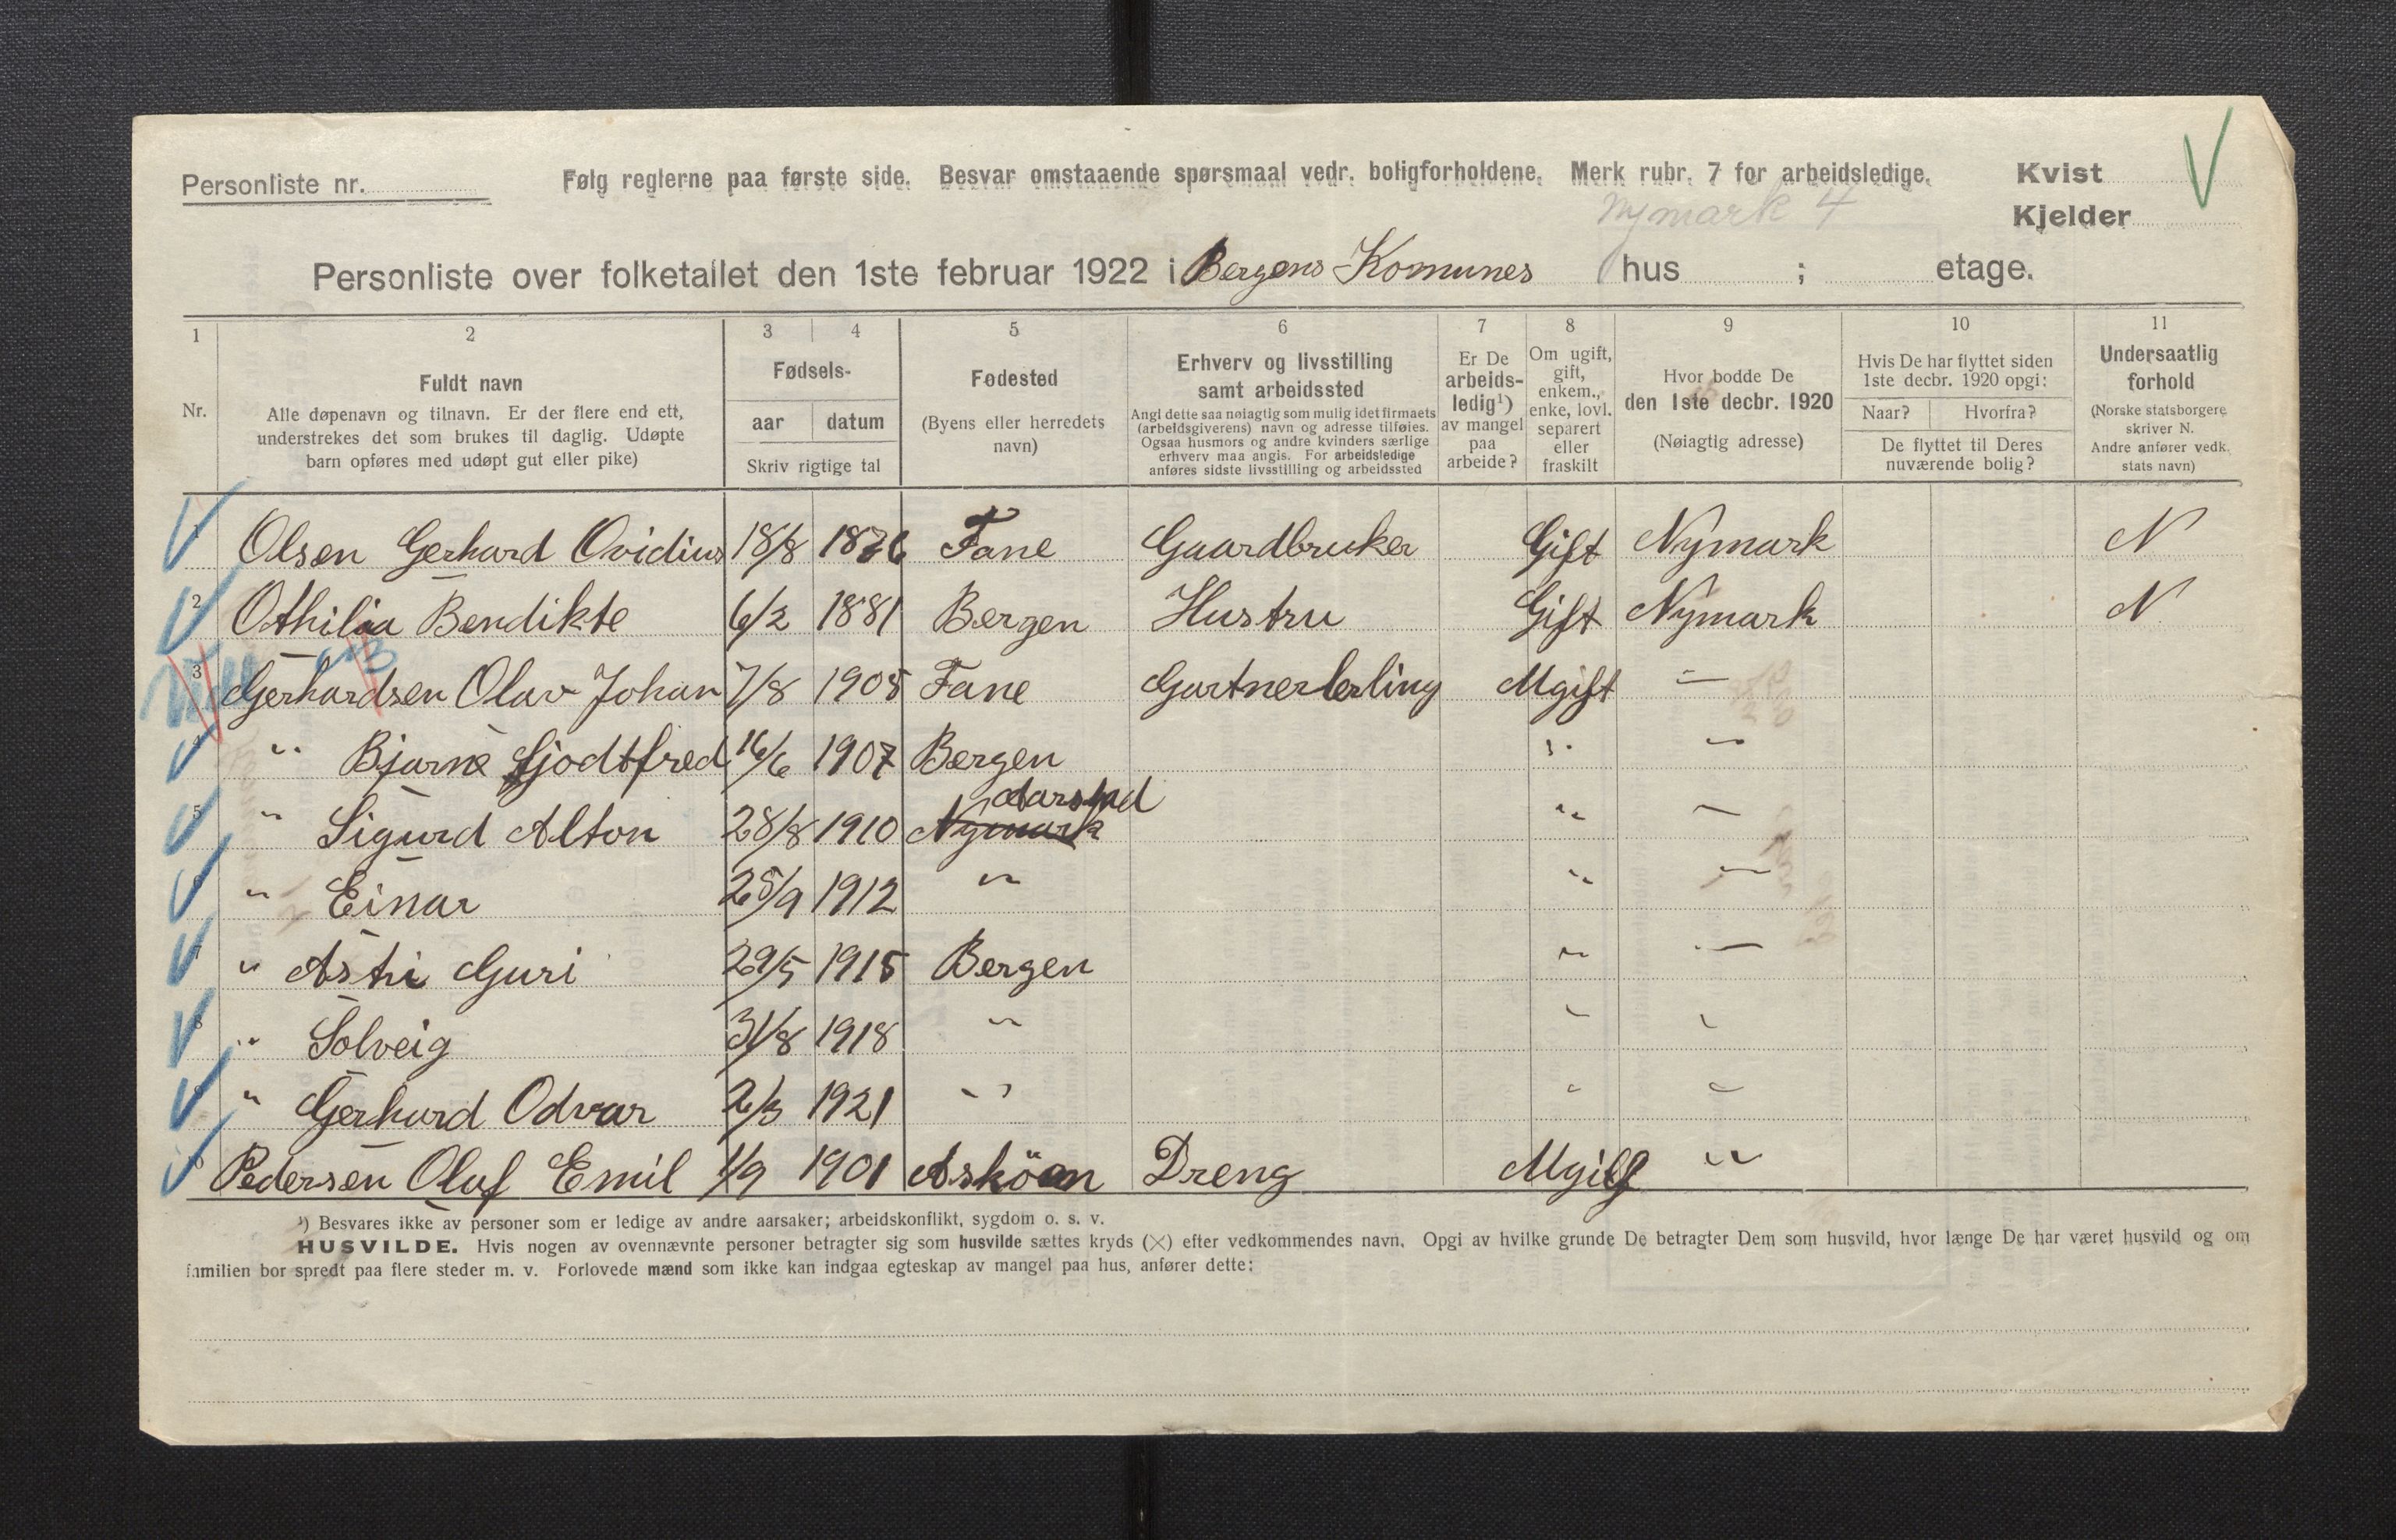 Personliste nr.
Følg reglerne paa første side. Besvar omstaaende spørsmaal vedr. boligforholdene. Merk rubr. 7 for arbeidsledige.
Kvist
Kjelder
Nymark 4
Personliste over folketallet den 1ste februar 1922 i Bergens Komunes hus ; etage.
1 2 3 4 5 6 7 8 9 10 11
Nr.
Fuldt navn
Alle døpenavn og tilnavn. Er der flere end ett,
understrekes det som brukes til daglig. Udøpte
barn opføres med udøpt gut eller pike)
Fødsels-
aar datum
Skriv rigtige tal
Fødested
(Byens eller herredets
navn)
Erhverv og livsstilling
samt arbeidssted
Angi dette saa nøiagtig som mulig idet firmaets
(arbeidsgiverens) navn og adresse tilføies.
Ogsaa husmors og andre kvinders særlige
erhverv maa angis. For arbeidsledige
anføres sidste livsstilling og arbeidssted
Er De
arbeids-
ledig¹)
av mangel
paa
arbeide?
Om ugift,
gift,
enkem.,
enke, lovl.
separert
eller
fraskilt
Hvor bodde De
den 1ste decbr. 1920
(Nøiagtig adresse)
Hvis De har flyttet siden
1ste decbr. 1920 opgi:
Naar? Hvorfra?
De flyttet til Deres
nuværende bolig?
Undersaatlig
forhold
(Norske statsborgere
skriver N.
Andre anfører vedk.
stats navn)
1 Olsen Gerhard Ovidius 18/8 1876 Fane Gaardbruker Gift Nymark N
2 Othilia Bendikte 6/2 1881 Bergen Hustru Gift Nymark N
3 Gerhardsen Olav Johan 7/8 1905 Fane Gartnerlerling Ugift "
4 " Bjarne Gjodtfred 16/6 1907 Bergen " "
Aarstad
5 " Sigurd Alton 28/8 1910 Nymark " "
6 " Einar 25/9 1912 " " "
7 " Astri Guri 29/5 1915 Bergen " "
8 " Solveig 31/8 1918 " " "
9 " Gerhard Odvar 2/3 1921 " " "
10 Pedersen Olaf Emil 1/9 1901 Asköen Dreng Ugift "
¹) Besvares ikke av personer som er ledige av andre aarsaker; arbeidskonflikt, sygdom o. s. v.
HUSVILDE. Hvis nogen av ovennævnte personer betragter sig som husvilde sættes kryds (×) efter vedkommendes navn. Opgi av hvilke grunde De betragter Dem som husvild, hvor længe De har været husvild og om
familien bor spredt paa flere steder m. v. Forlovede mænd som ikke kan indgaa egteskap av mangel paa hus, anfører dette: